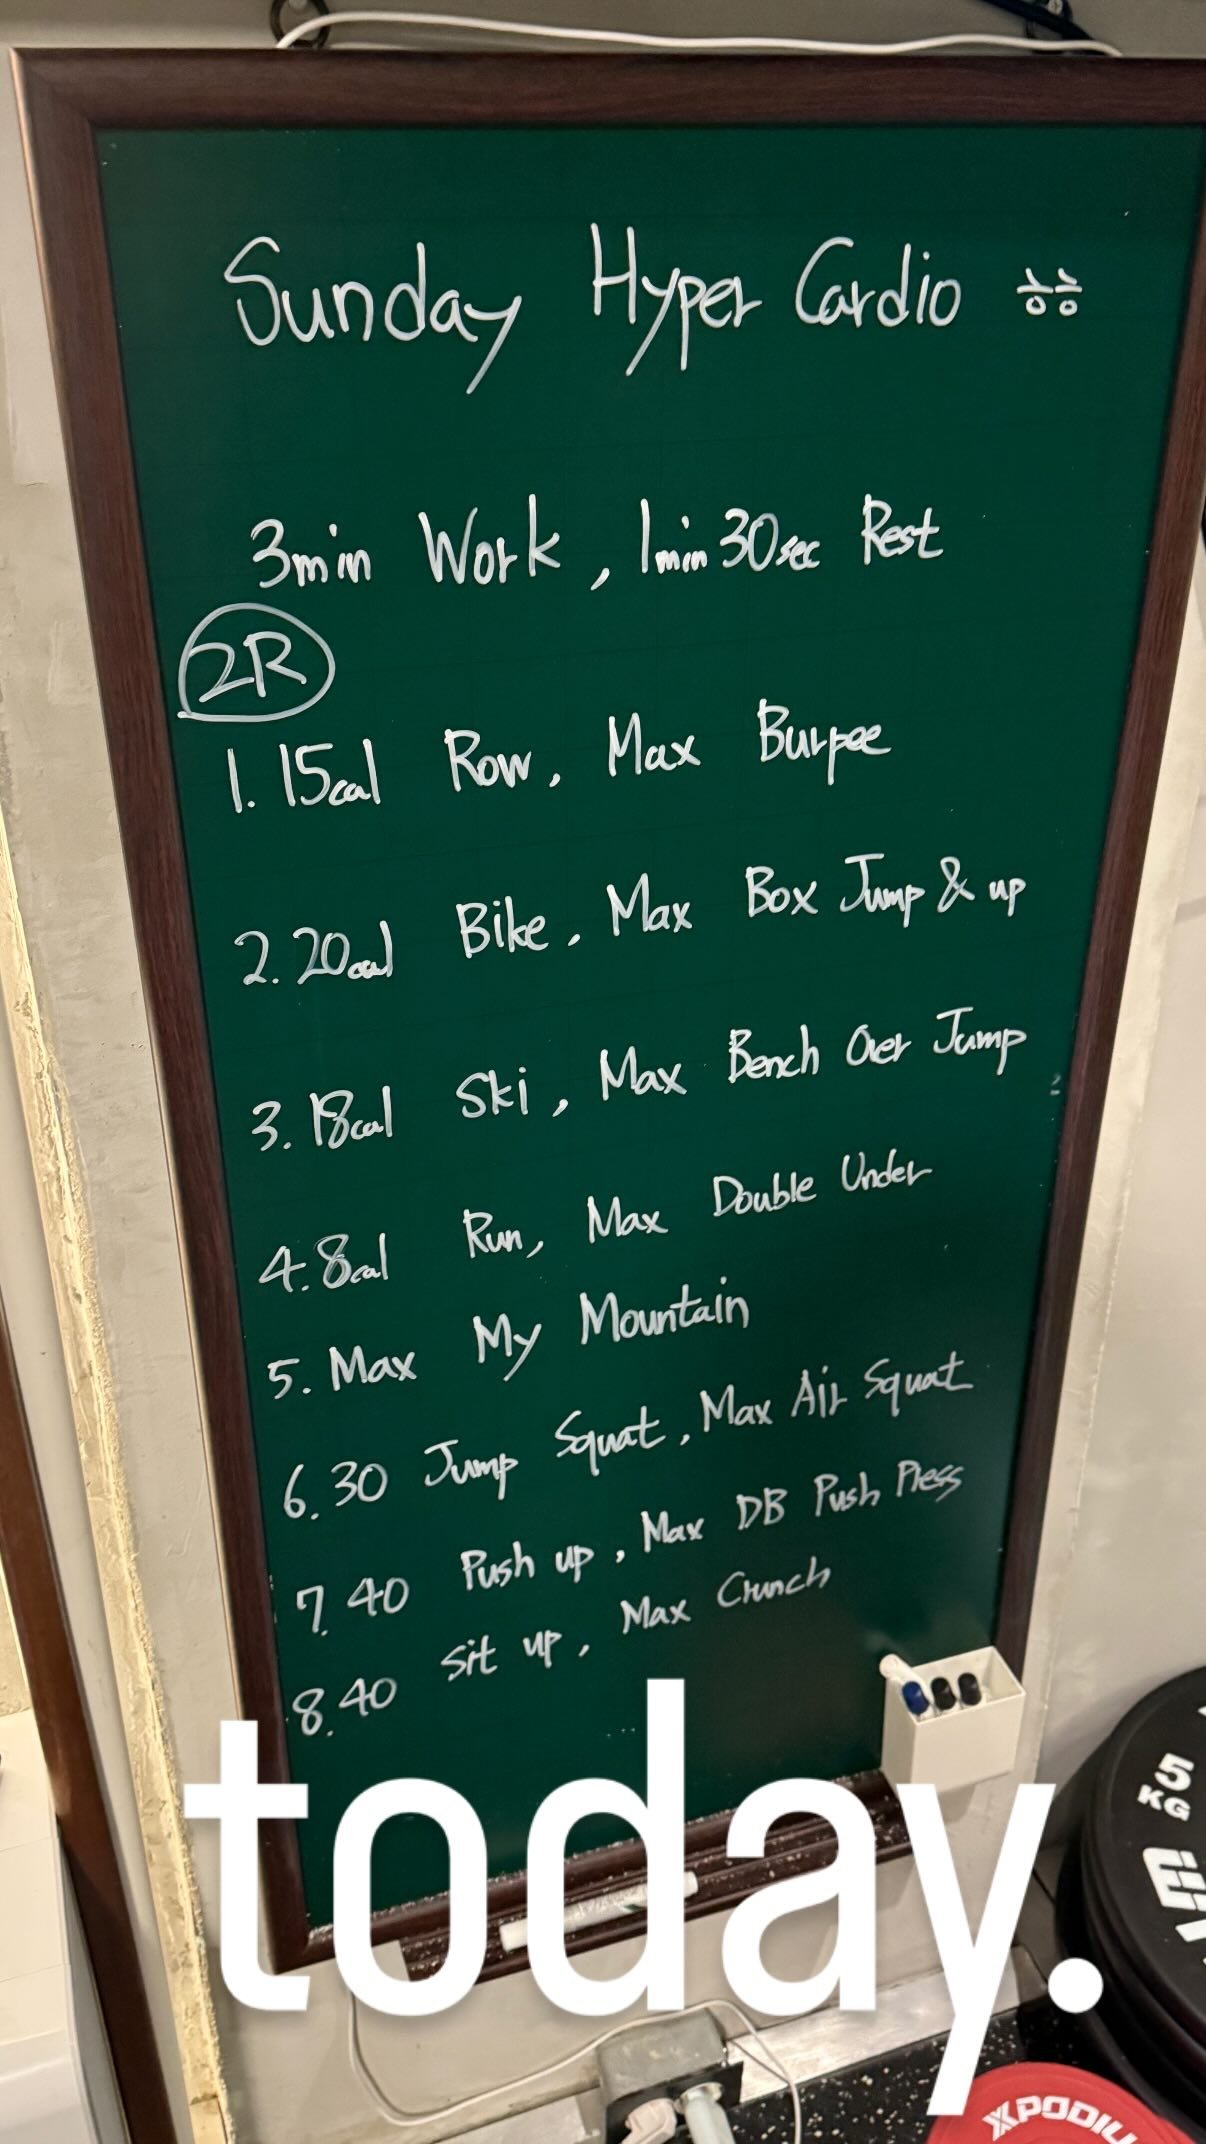 Sunday Hyper Cardio
3min Work, 1min 30sec Rest
2R
1. 15cal Row, Max Burpee
2. 20cal Bike, Max Box Jump & up
3. 18cal Ski, Max Bench Over Jump
4. 8cal Run, Max Double Under
5. Max My Mountain
6. 30 Jump Squat, Max Air Squat
7. 40 Push up, Max DB Push Press
8. 40 Sit up, Max Crunch
today.
5
KG